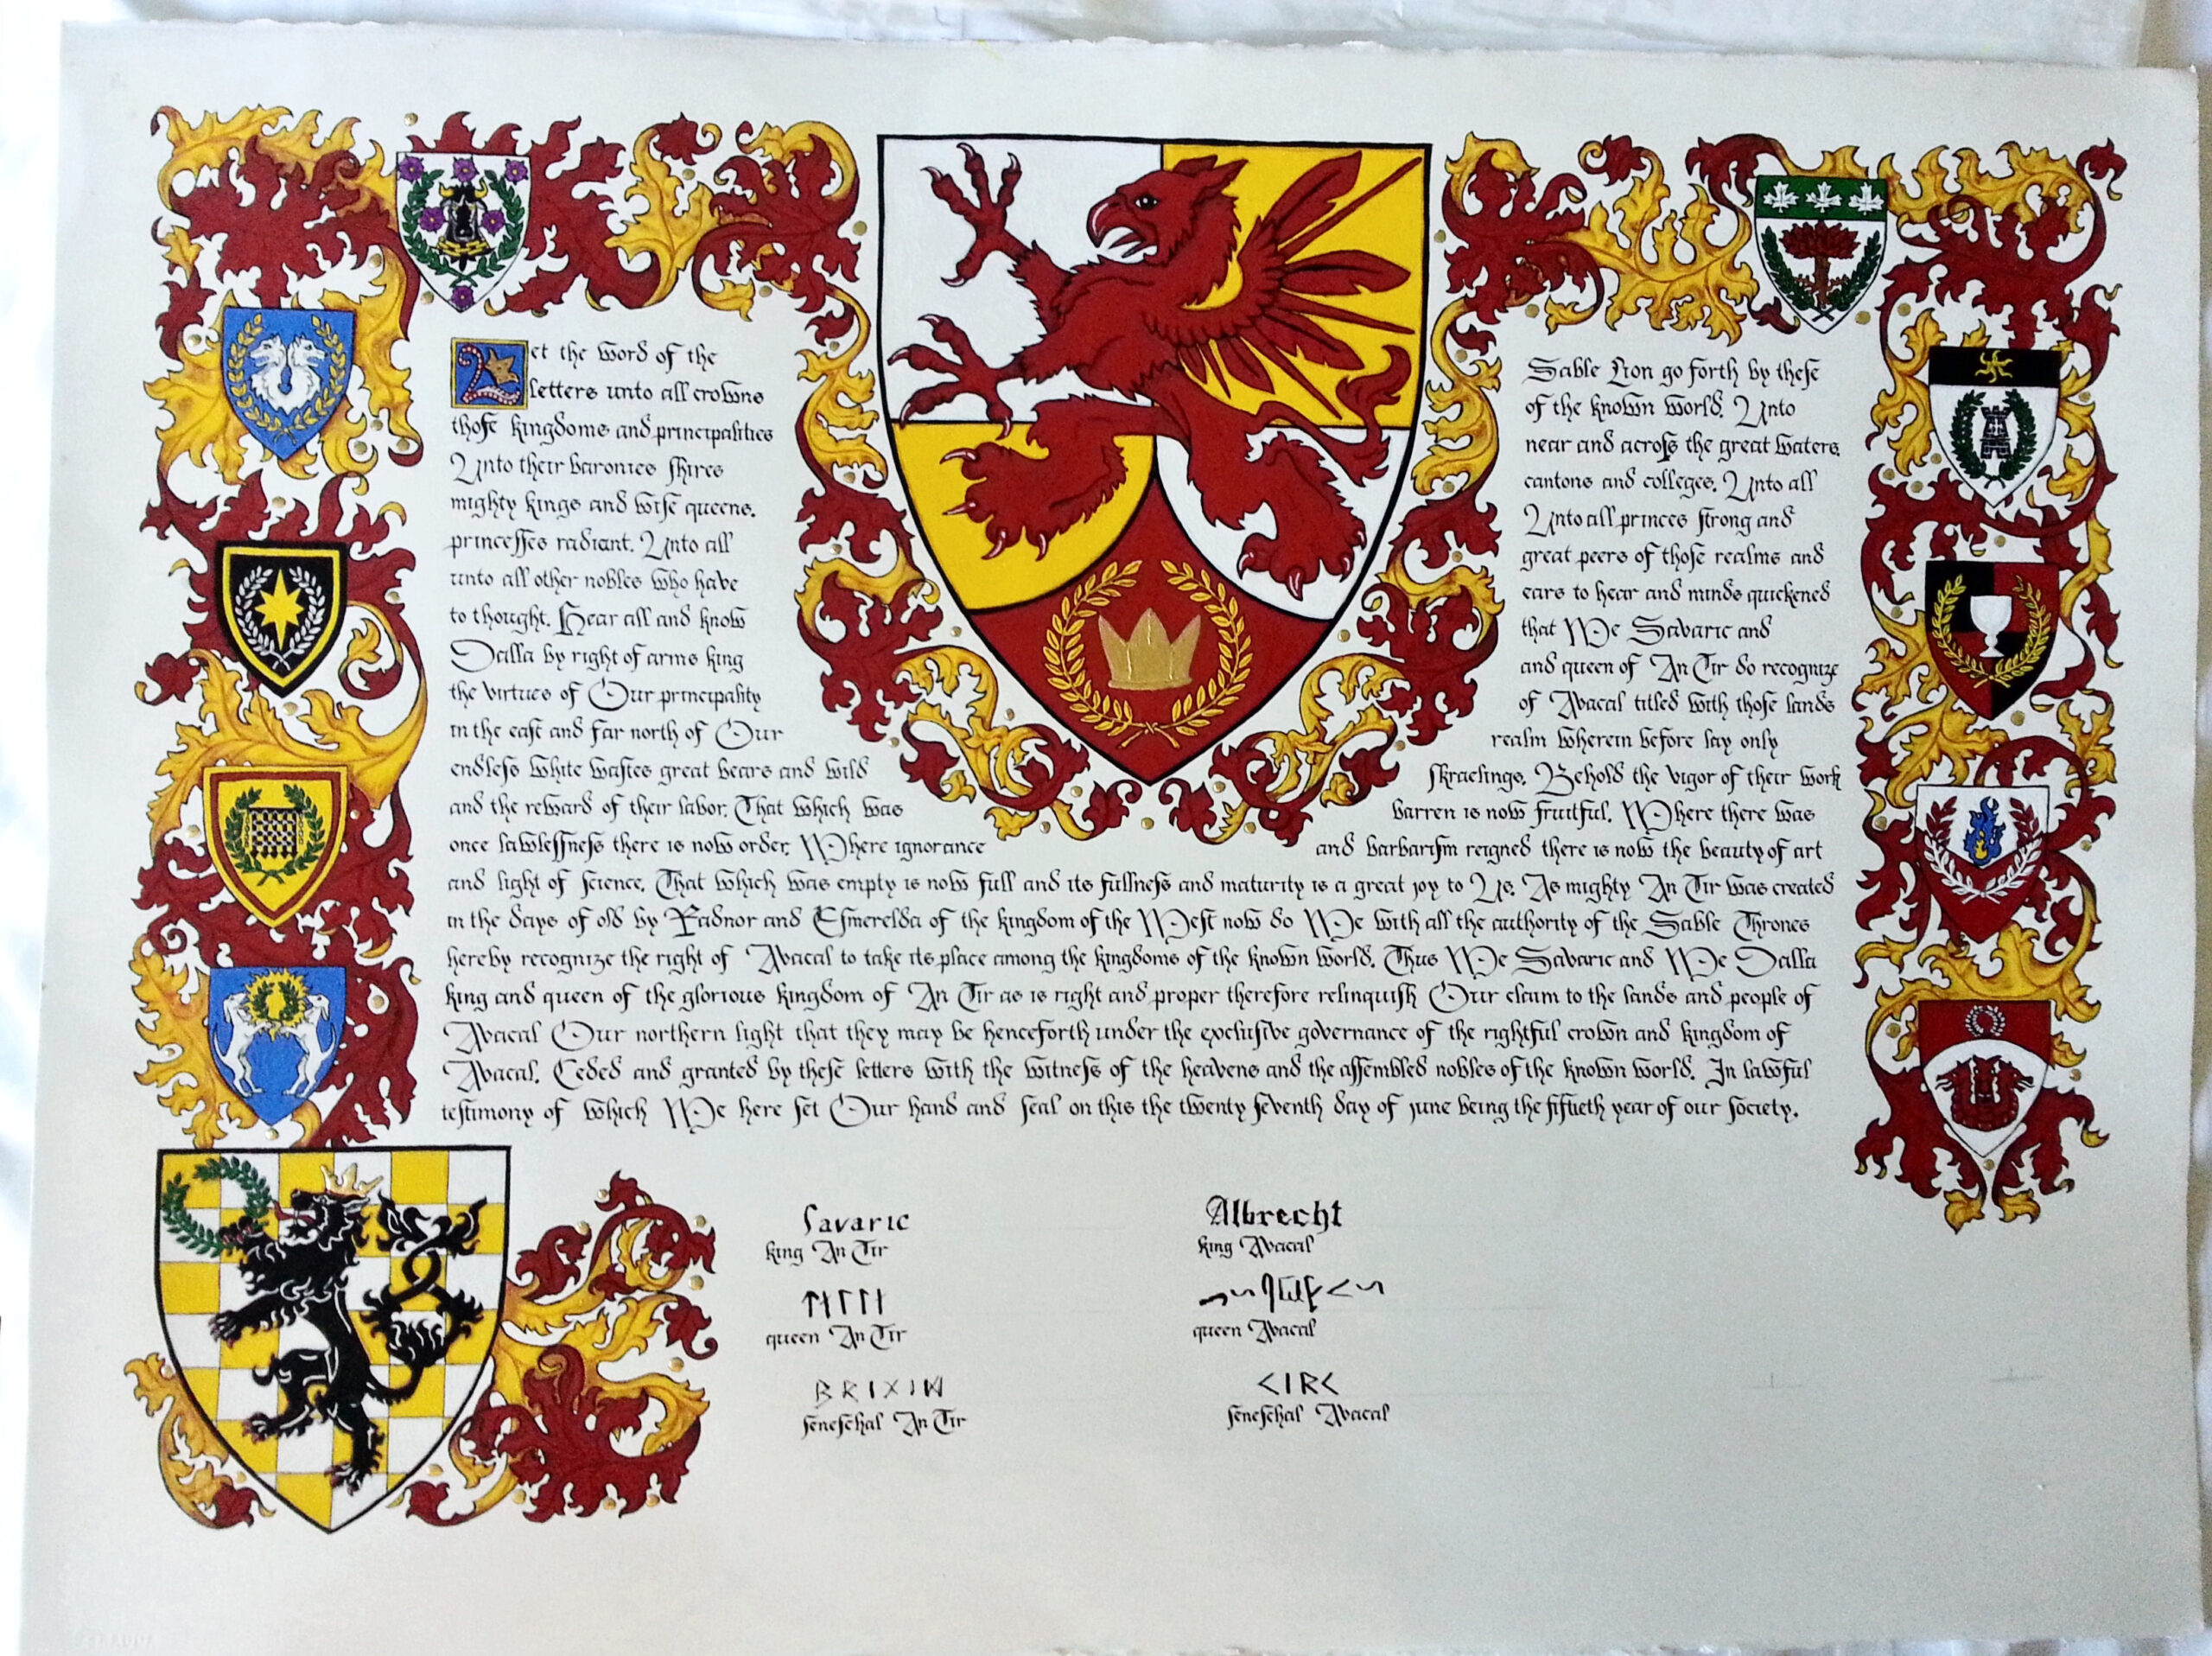 Let the word of the Sable Lion go forth by these
letters unto all crowns of the known world. Unto
those kingdoms and principalities near and across the great waters.
Unto their baronies shires cantons and colleges. Unto all
mighty kings and wise queens. Unto all princes strong and
princesses radiant. Unto all great peers of those realms and
unto all other nobles who have ears to hear and minds quickened
to thought. Hear all and know that We Savaric and
Dalla by right of arms king and queen of An Tir do recognize
the virtues of Our principality of Avacal titled with those lands
in the east and far north of Our realm wherein before lay only
endless white wastes great bears and wild skraelings. Behold the vigor of their work
and the reward of their labor. That which was barren is now fruitful. Where there was
once lawlessness there is now order. Where ignorance and barbarism reigned there is now the beauty of art
and light of science. That which was empty is now full and its fullness and maturity is a great joy to Us. As mighty An Tir was created
in the days of old by Radnor and Esmerelda of the kingdom of the West now do We with all the authority of the Sable Thrones
hereby recognize the right of Avacal to take its place among the kingdoms of the known world. Thus We Savaric and We Dalla
king and queen of the glorious kingdom of An Tir as is right and proper therefore relinquish Our claim to the lands and people of
Avacal Our northern light that they may be henceforth under the exclusive governance of the rightful crown and kingdom of
Avacal. Ceded and granted by these letters with the witness of the heavens and the assembled nobles of the known world. In lawful
testimony of which We here set Our hand and seal on this the twenty seventh day of june being the fiftieth year of our society.
Savaric
king An Tir
Albrecht
king Avacal
queen An Tir
queen Avacal
ᛒᚱᛁᚷᛁᛞ
seneschal An Tir
ᚲᛁᚱᚲ
seneschal Avacal